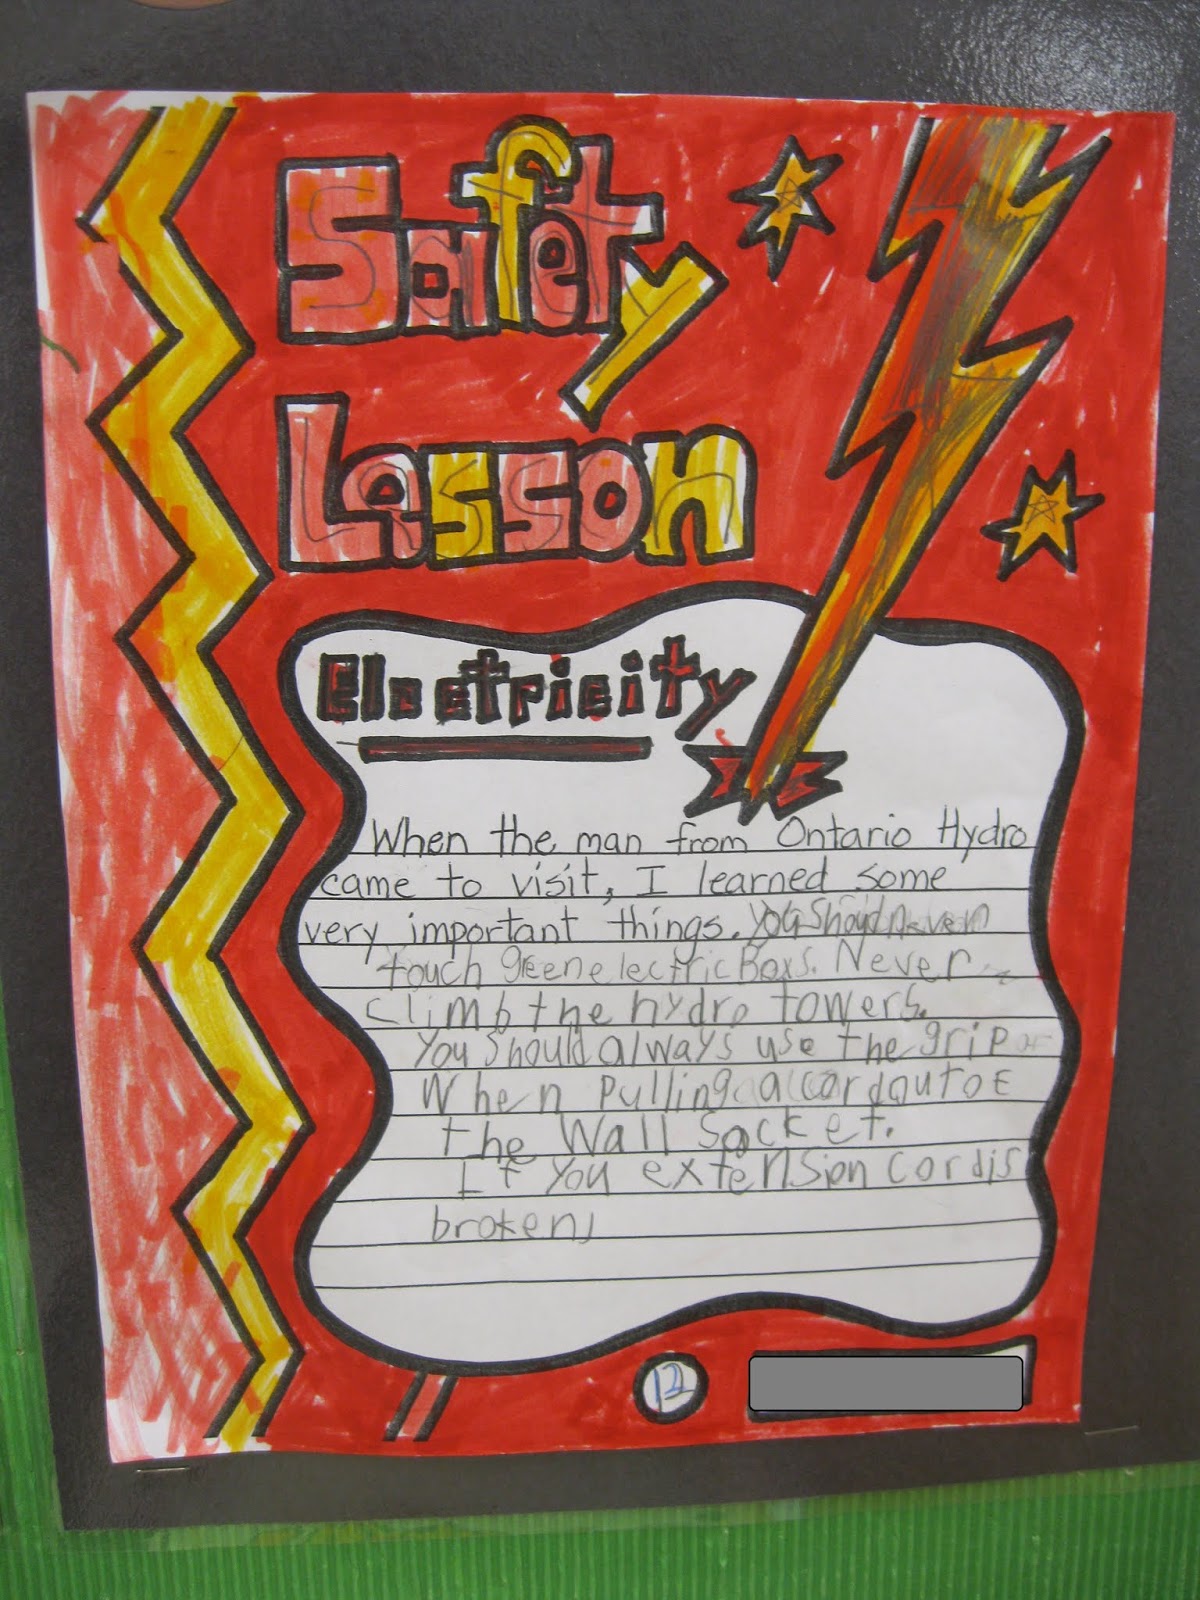 Safety
Lesson
Electricity
When the man from Ontario Hydro
came to visit, I learned some
very important things. You should never
touch green electric Boxs. Never
climb the hydro towers.
You should always use the grip
When pulling a cord out of
the Wall Socket.
If you extension cord is
broken,
12